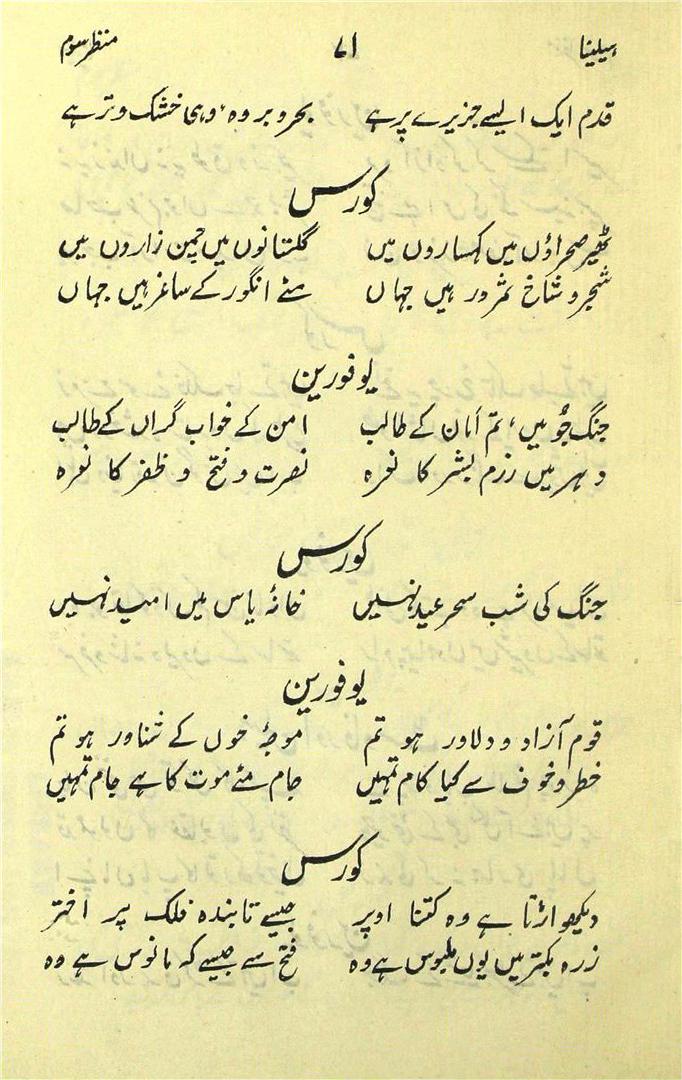 ہیلینا ۷۱ منظر سوم
قدم ایک ایسے جزیرے پر ہے بحر و بر وہ، وہی خشک و تر ہے
کورس
ٹھیر صحراؤں میں کہساروں میں گلستانوں میں چمن زاروں میں
شجر و شاخ ثمرور ہیں جہاں مئے انگور کے ساغر ہیں جہاں
یوفورین
جنگ جُو میں، تم اَمان کے طالب امن کے خواب گراں کے طالب
دہر میں رزم بشر کا نعرہ نصرت و فتح و ظفر کا نعرہ
کورس
جنگ کی شب سحر عید نہیں خانۂ یاس میں امید نہیں
یوفورین
قوم آزاد و دلاور ہو تم موجۂ خوں کے شناور ہو تم
خطر و خوف سے کیا کام تمہیں جام مئے موت کا ہے جام تمہیں
کورس
دیکھو اڑتا ہے وہ کتنا اوپر جیسے تابندہ فلک پر اختر
زرہ بکتر میں یوں ملبوس ہے وہ فتح سے جیسے کہ مانوس ہے وہ